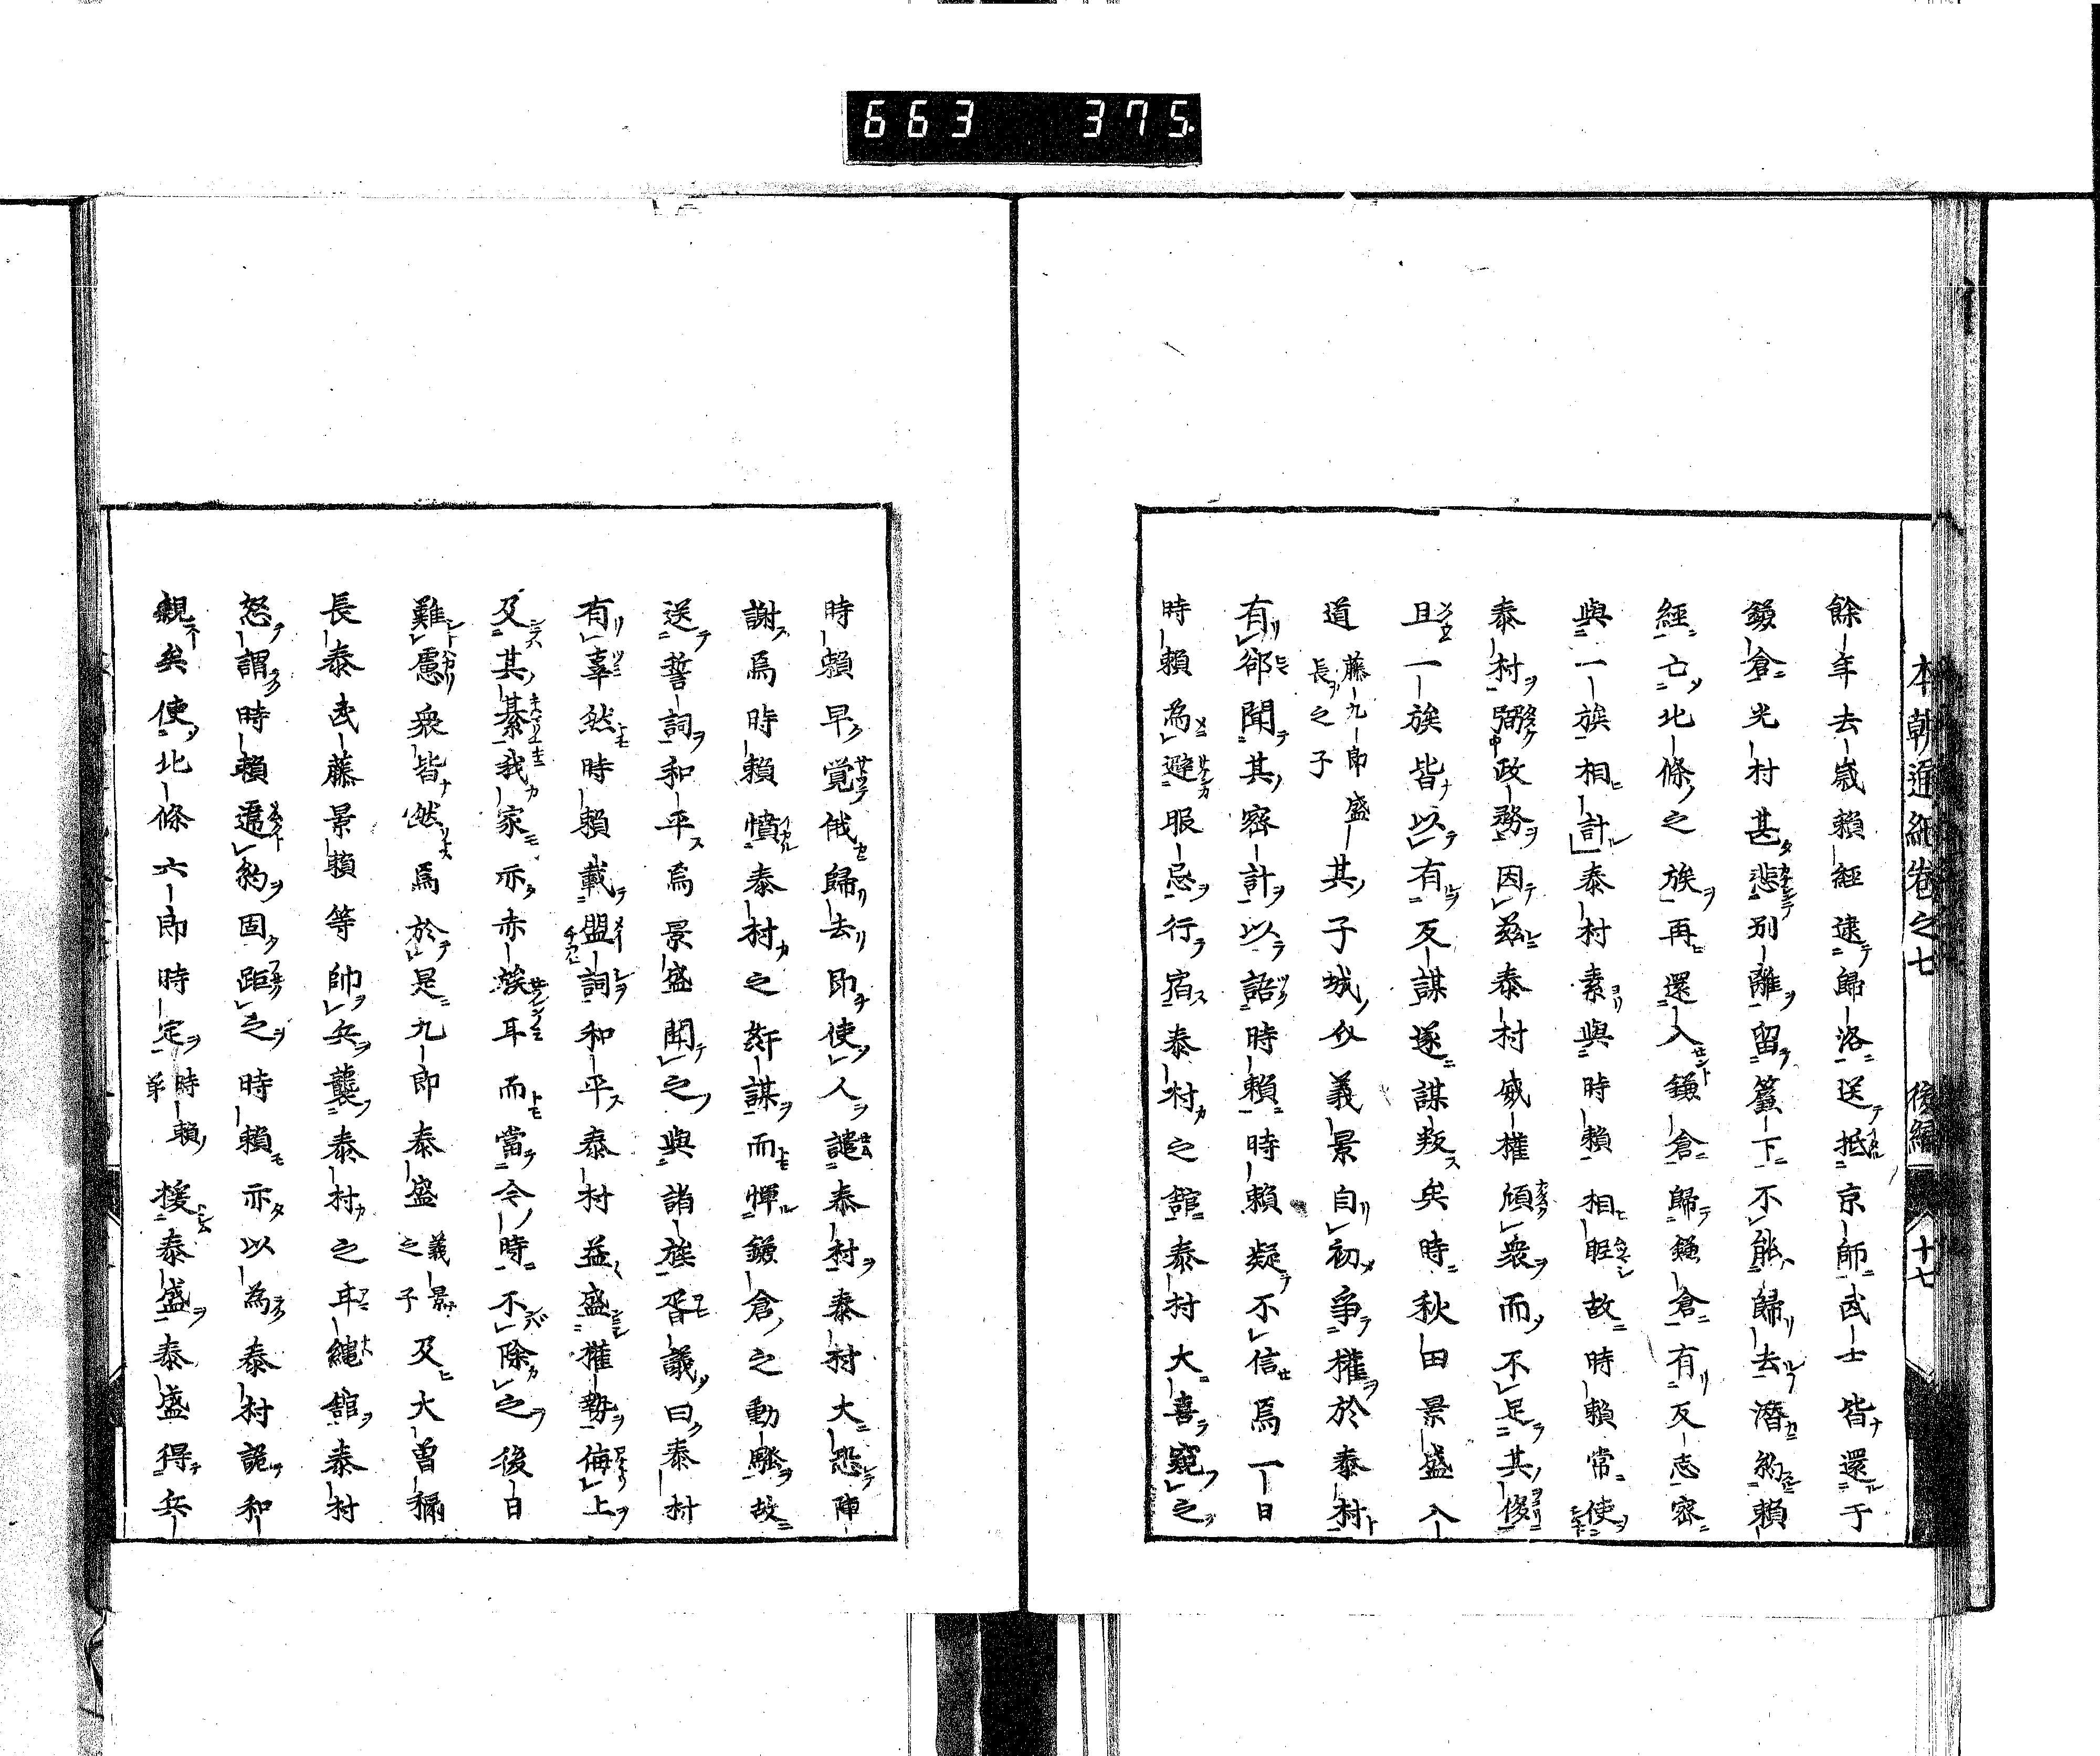 663 375.
本朝通紀卷之七 後編 十七
餘年去歲賴經逮歸洛送抵京師武士皆還于
鎌倉光村甚悲別離留簾下不能歸去潛約賴
經亡北條之族再還入鎌倉歸鎌倉有反志密
與一族相計泰村素與時賴相眤故時賴常使
泰村弼政務因茲泰村威權傾衆而不足其侈
且一族皆以有反謀遂謀叛矣時秋田景盛入
道藤九郎盛長之子其子城介義景自初爭權於泰村
有郤聞其密計以語時賴時賴疑不信焉一日
時賴為避服忌行宿泰村之館泰村大喜窺之
時賴早覚俄歸去即使人譴泰村泰村大恐陳
謝焉時賴憤泰村之姧謀而憚鎌倉之動騷故
送誓詞和平焉景盛聞之與諸族胥議曰泰村
有辜然時賴載盟詞和平泰村益盛權勢侮上
及其綦我家亦赤族耳而當今時不除之後日
難慮衆皆然焉於是九郎泰盛義景之子及大曽禰
長泰武藤景賴等帥兵襲泰村之耳繩館泰村
怒謂時賴遷約固距之時賴亦以為泰村詭和
親矣使北條六郎時定時賴弟援泰盛泰盛得兵